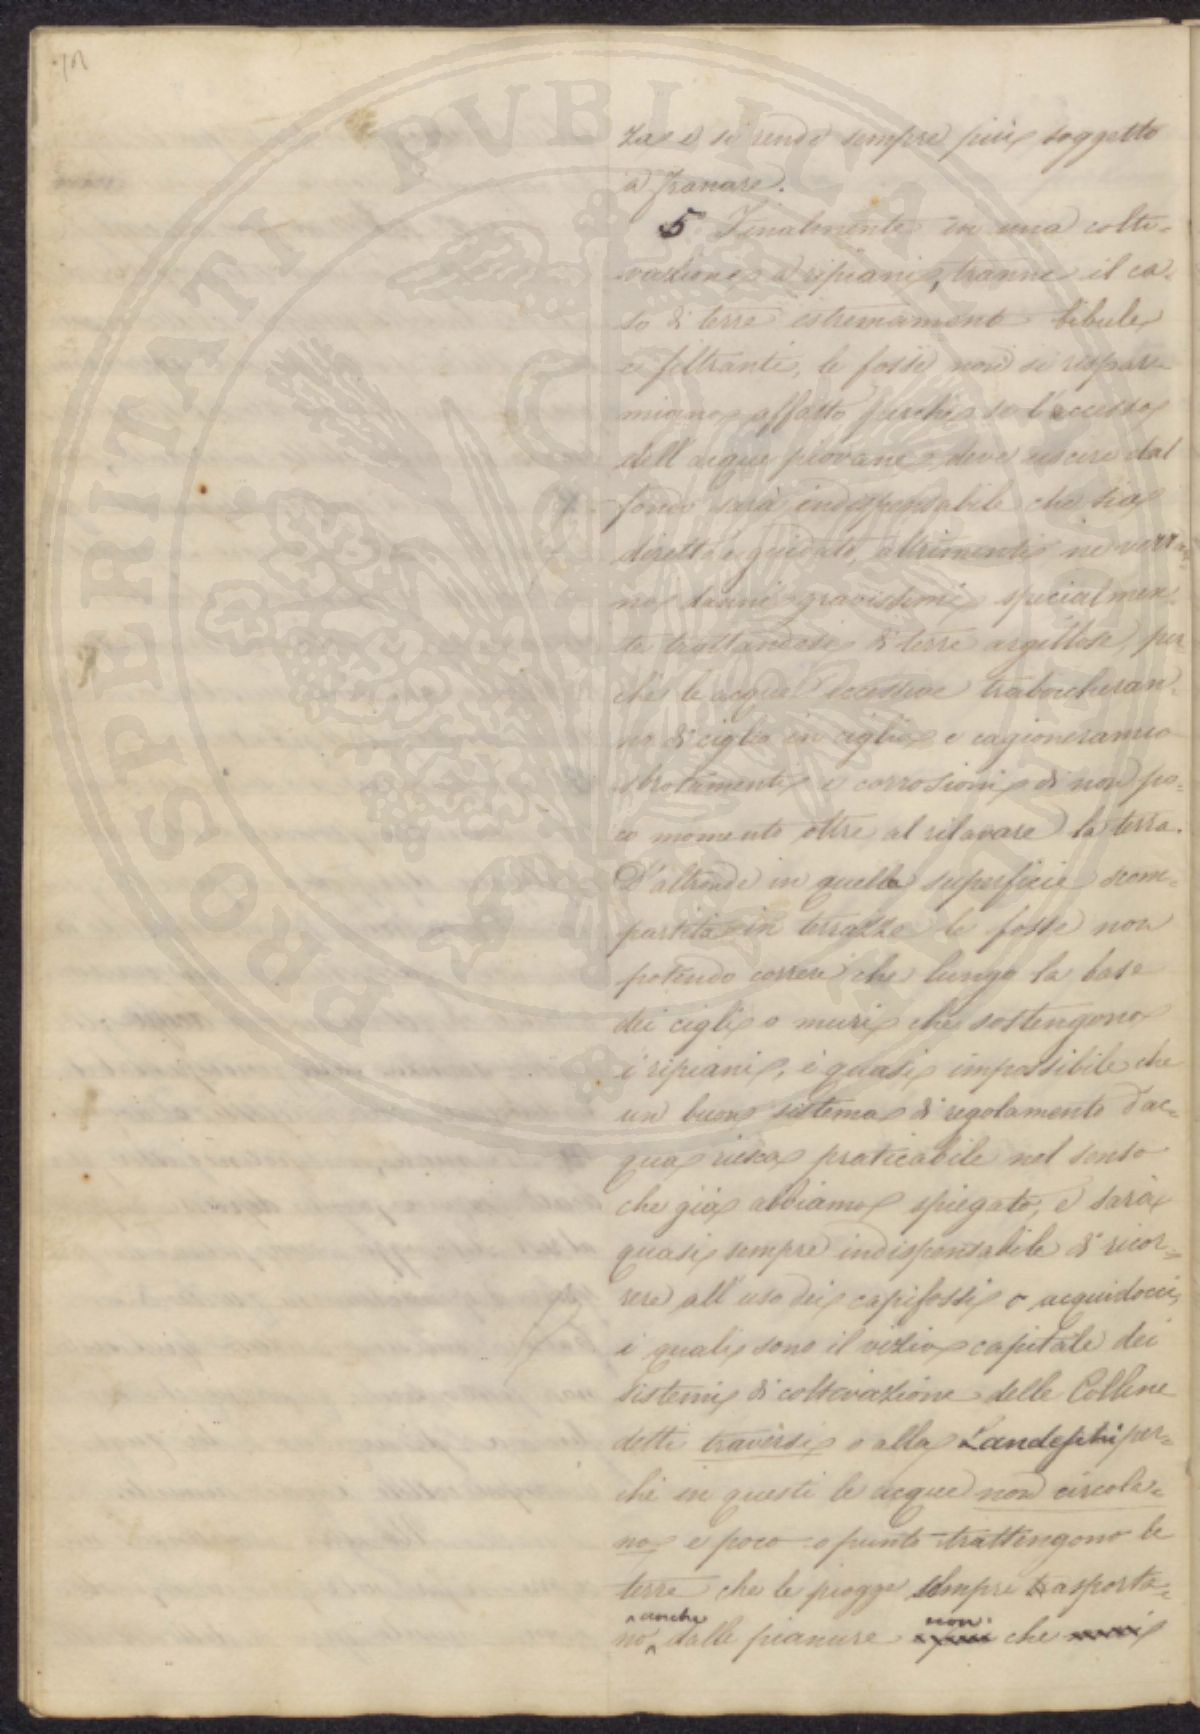 PROSPERITATI PUBLICAE
za e si rende sempre più soggetto
a franare.
5 Finalmente in una colti-
vazione a ripiani, tranne il ca-
so di terre estremamente bibule
e filtranti, le fosse non si rispar-
miano affatto perchè se l'eccesso
dell'acque piovane deve uscire dal
fondo sarà indispensabile che sia
diretto e guidato, altrimenti ne verran-
no danni gravissimi specialmen-
te trattandosi di terre argillose, per
chè le acque eccessive traboccheran-
no di ciglio in ciglio e cagioneranno
sbrotamenti e corrosioni di non po-
co momento oltre al rilavare la terra.
D'altronde in quella superficie scom-
partita in terrazze le fosse non
potendo correre che lungo la base
dei cigli o muri che sostengono
i ripiani, è quasi impossibile che
un buon sistema di regolamento d'ac-
qua riesca praticabile nel senso
che già abbiamo spiegato, e sarà
quasi sempre indispensabile di ricor-
rere all'uso dei capifossi o acquidocci,
i quali sono il vizio capitale dei
sistemi di coltivazione delle Colline
detti traversi o alla Landeschi per-
chè in questi le acque non circola-
no e poco o punto trattengono le
terre che le piogge sempre trasporta-
no anche dalle pianure non che